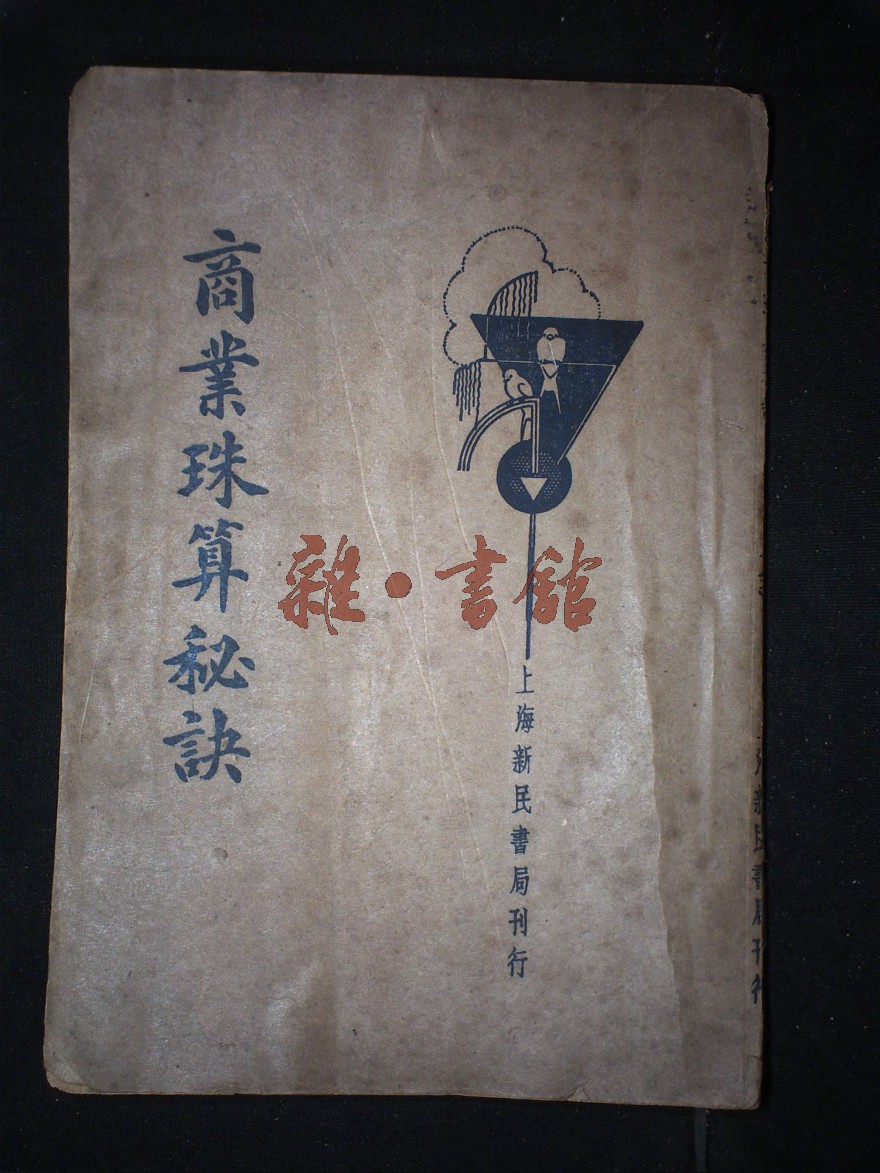 商業珠算秘訣
雜·書館
上海新民書局刊行
新民書局刊行